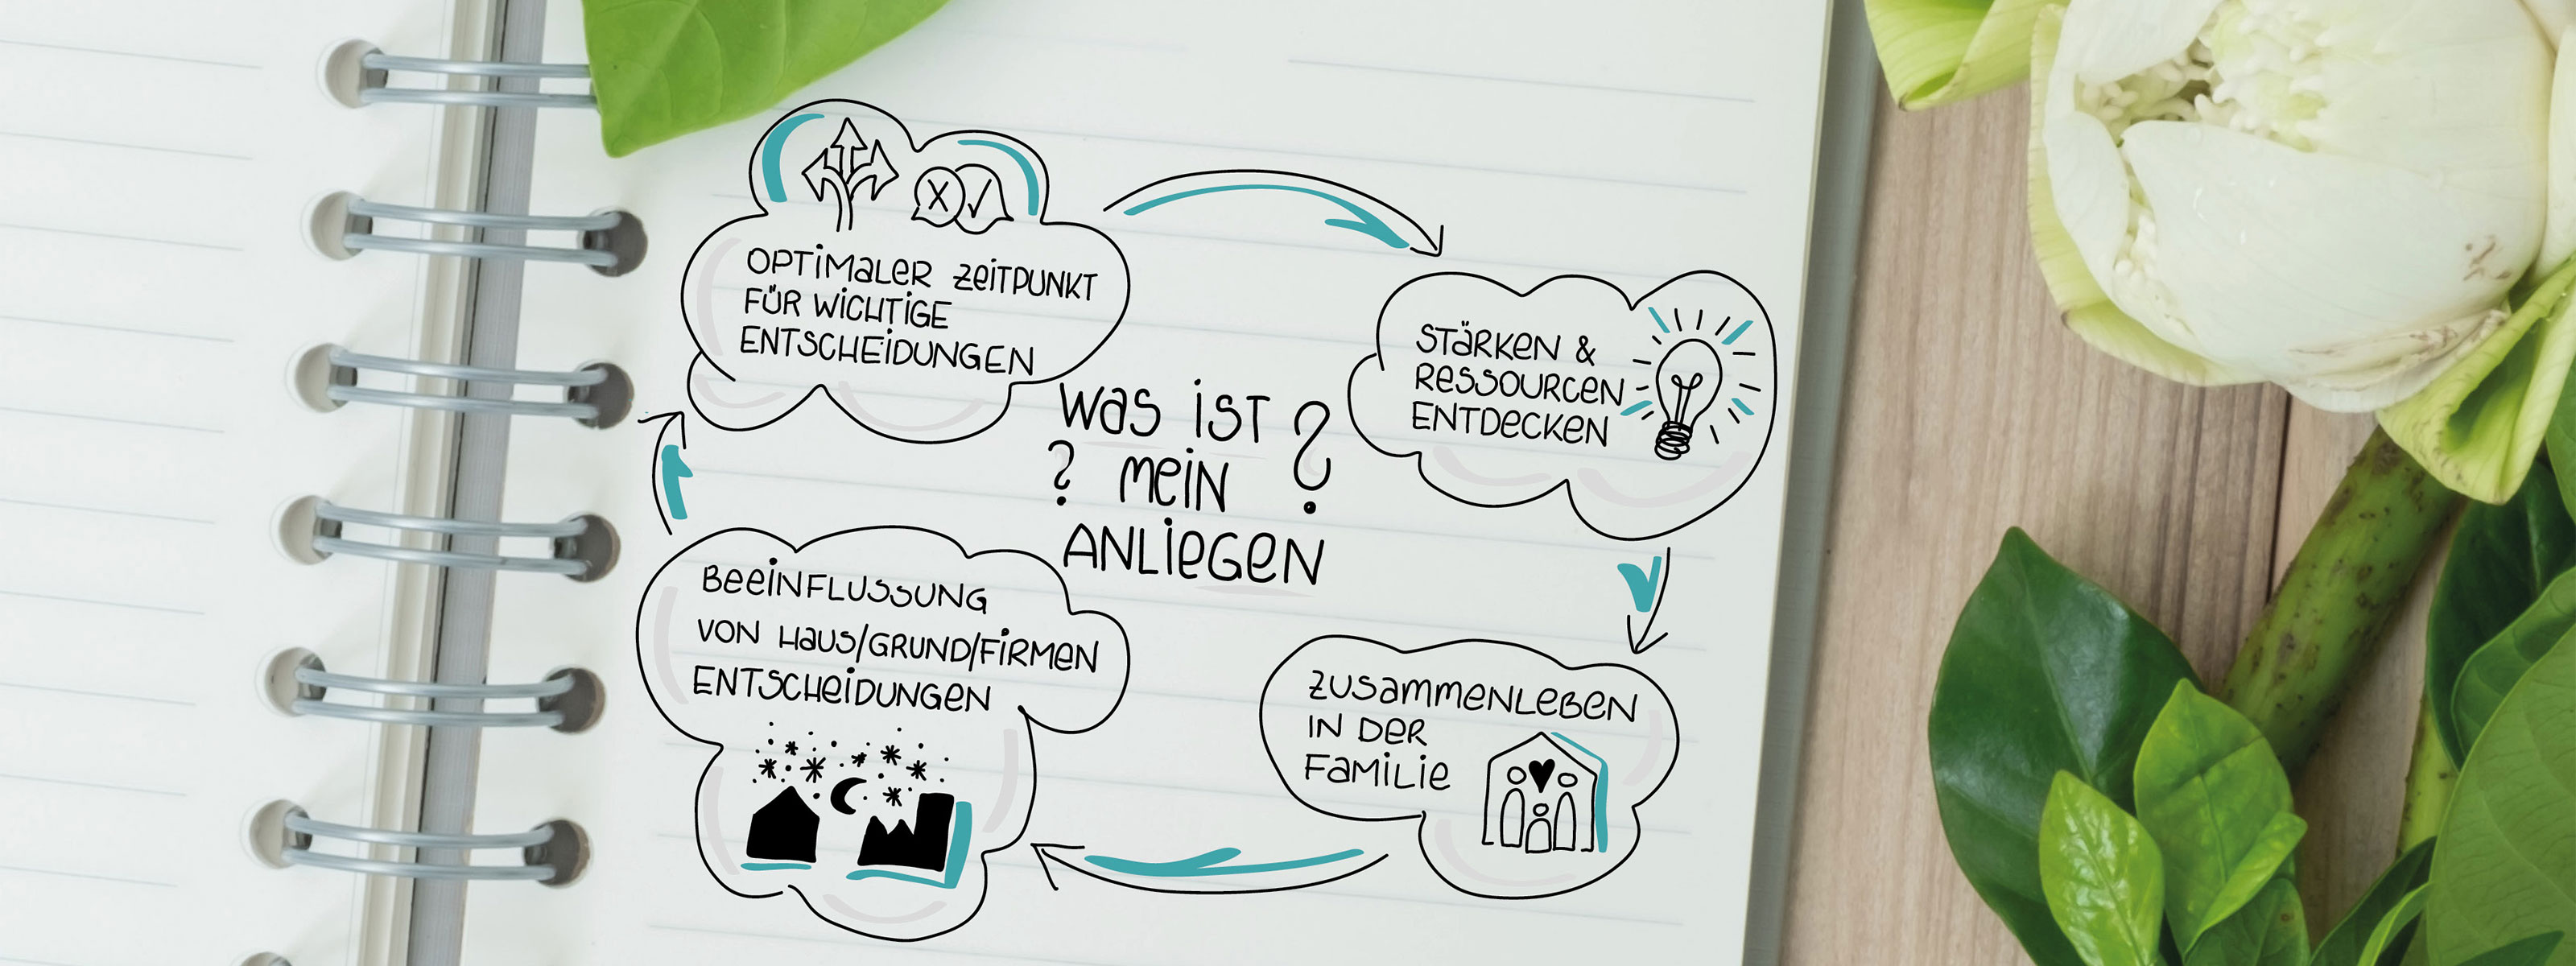 OPTIMALER ZEITPUNKT
FÜR WICHTIGE
ENTSCHEIDUNGEN
STÄRKEN &
RESSOURCEN
ENTDECKEN
WAS IST ?
? MEIN
ANLIEGEN
BEEINFLUSSUNG
VON HAUS/GRUND/FIRMEN
ENTSCHEIDUNGEN
ZUSAMMENLEBEN
IN DER
FAMILIE